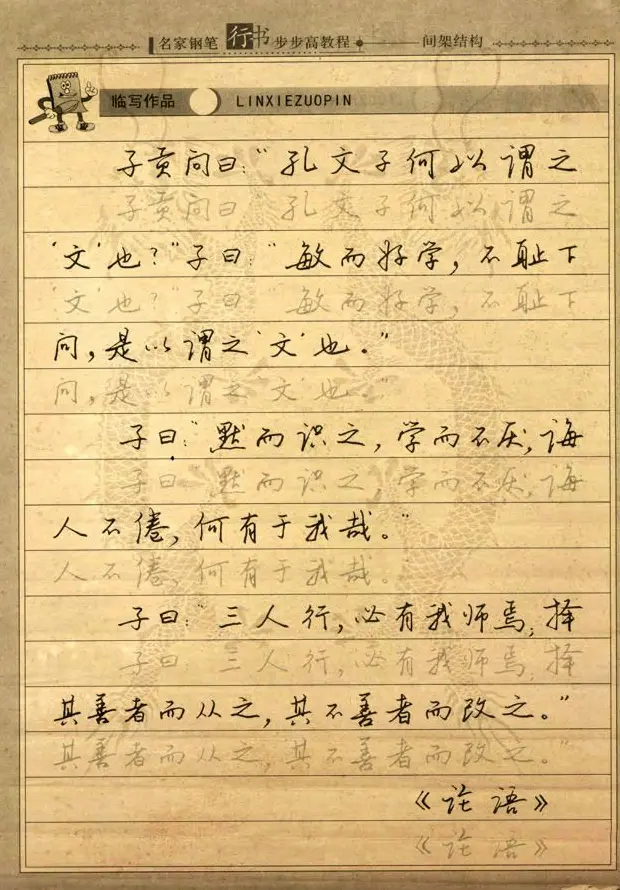 名家钢笔 行书 步步高教程 间架结构
临写作品 LINXIEZUOPIN
子贡问曰:“孔文子何以谓之
子贡问曰 “孔文子何以谓之
‘文’也?”子曰:“敏而好学,不耻下
‘文’也?”子曰 “敏而好学,不耻下
问,是以谓之‘文’也。”
问,是以谓之‘文’也。”
子曰:“默而识之,学而不厌,诲
子曰 默而识之,学而不厌,诲
人不倦,何有于我哉。”
人不倦,何有于我哉。
子曰:“三人行,必有我师焉;择
子曰:“三人行,必有我师焉;择
其善者而从之,其不善者而改之。”
其善者而从之,其不善者而改之。”
《论语》
《论语》